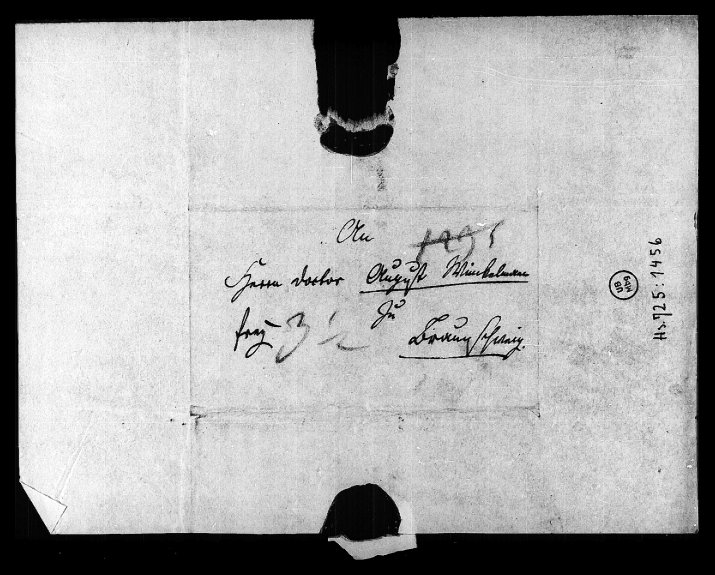 An
Herrn Doctor August Winkelmann
zu
frey 3 1/2 Braunschweig.
UB
Mbg
Hs. 725:1456